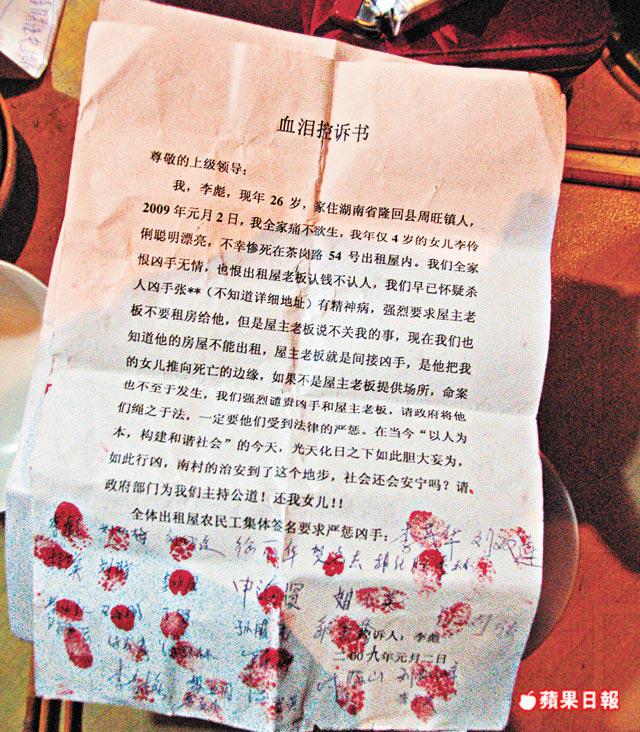 血泪控诉书
尊敬的上级领导：
我，李彪，现年 26 岁，家住湖南省隆回县周旺镇人，
2009 年元月 2 日，我全家痛不欲生，我年仅 4 岁的女儿李伶
俐聪明漂亮，不幸惨死在茶岗路 54 号出租屋内。我们全家
恨凶手无情，也恨出租屋老板认钱不认人，我们早已怀疑杀
人凶手张**（不知道详细地址）有精神病，强烈要求屋主老
板不要租房给他，但是屋主老板说不关我的事，现在我们也
知道他的房屋不能出租，屋主老板就是间接凶手，是他把我
的女儿推向死亡的边缘，如果不是屋主老板提供场所，命案
也不至于发生，我们强烈谴责凶手和屋主老板，请政府将他
们绳之于法，一定要他们受到法律的严惩。在当今“以人为
本，构建和谐社会”的今天，光天化日之下如此胆大妄为，
如此行凶，南村的治安到了这个地步，社会还会安宁吗？请
政府部门为我们主持公道！还我女儿！！
全体出租屋农民工集体签名要求严惩凶手：
控诉人：李彪
二00九年元月二日
蘋果日報